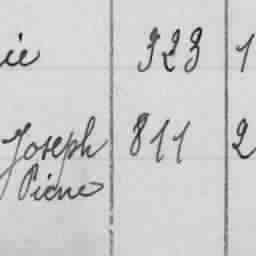 ie 323 1
Joseph 811 2
Pierre